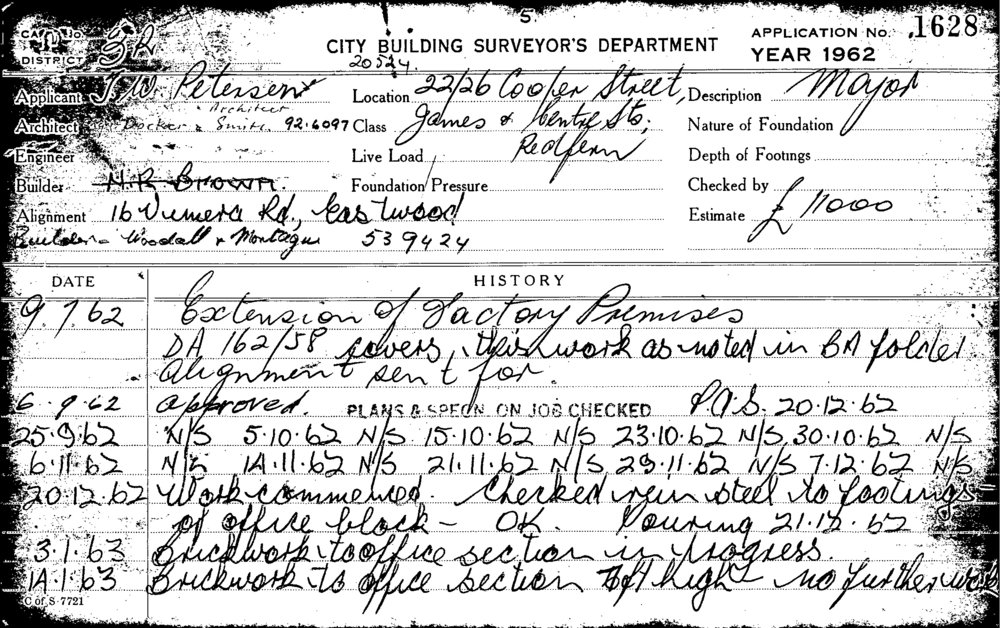 5
CA No DISTRICT 32
CITY BUILDING SURVEYOR'S DEPARTMENT
APPLICATION No. 1628
YEAR 1962
20524.
Applicant J. W. Petersen Location 22/26 Cooper Street, Description Major
Architect
Architect Docker & Smith. 92.6097 Class James & Centre Sts; Nature of Foundation
Engineer Live Load Redfern Depth of Footings
Builder H.R. BROWN. Foundation Pressure Checked by
Alignment 16 Vimera Rd, Eastwood Estimate £11000
Builders Woodall & Montague 539424
DATE HISTORY
9.7.62 Extension of Factory Premises
DA 162/58 covers this work as noted in BA folder
Alignment sent for.
6.9.62 Approved. PLANS & SPECN. ON JOB CHECKED P.A.S. 20.12.62
25.9.62 N/S 5.10.62 N/S 15.10.62 N/S 23.10.62 N/S 30.10.62 N/S
6.11.62 N/S 14.11.62 N/S 21.11.62 N/S 29.11.62 N/S 7.12.62 N/S
20.12.62 Work commenced. Checked rein steel to footings
of office block - OK. Pouring 21.12.62
3.1.63 Brickwork to office section in progress.
14.1.63 Brickwork to office section high - no further work
C of S 7721